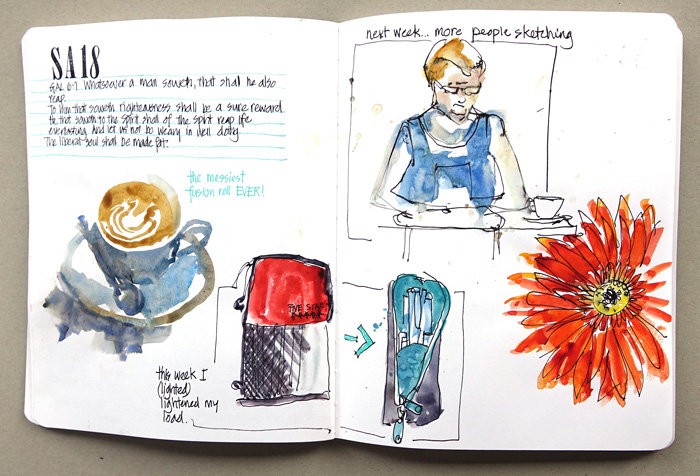 SA18
GAL 6:7 Whatsoever a man soweth, that shall he also
reap.
To him that soweth righteousness shall be a sure reward.
He that soweth to the Spirit shall of the Spirit reap life
everlasting. And let us not be weary in well doing.
The liberal soul shall be made fat.
the messiest
fusion roll EVER!
this week I
(lighted)
lightened my
load.
next week... more people sketching